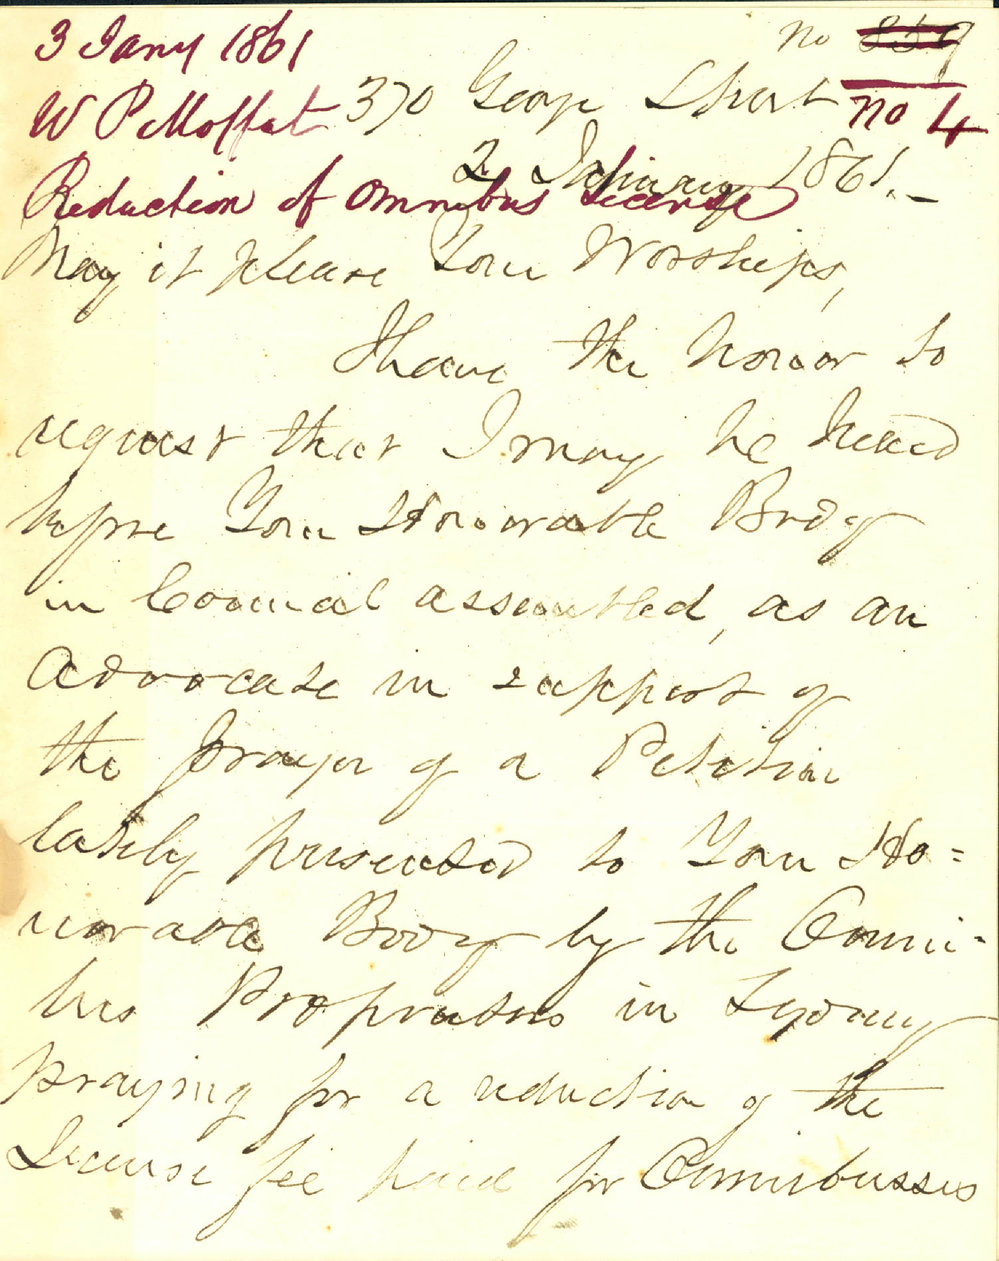 3 Jany 1861
no 859
W P Moffat
370 George Street
no 4
2 January 1861.
Reduction of Omnibus License
May it please Your Worships,
I have the honor to
request that I may be heard
before Your Honorable Body
in Council assembled, as an
Advocate in support of
the prayer of a Petition
lately presented to Your Ho=
norable Body by the Omni-
bus Proprietors in Sydney
praying for a reduction of the
License fee paid for Omnibusses